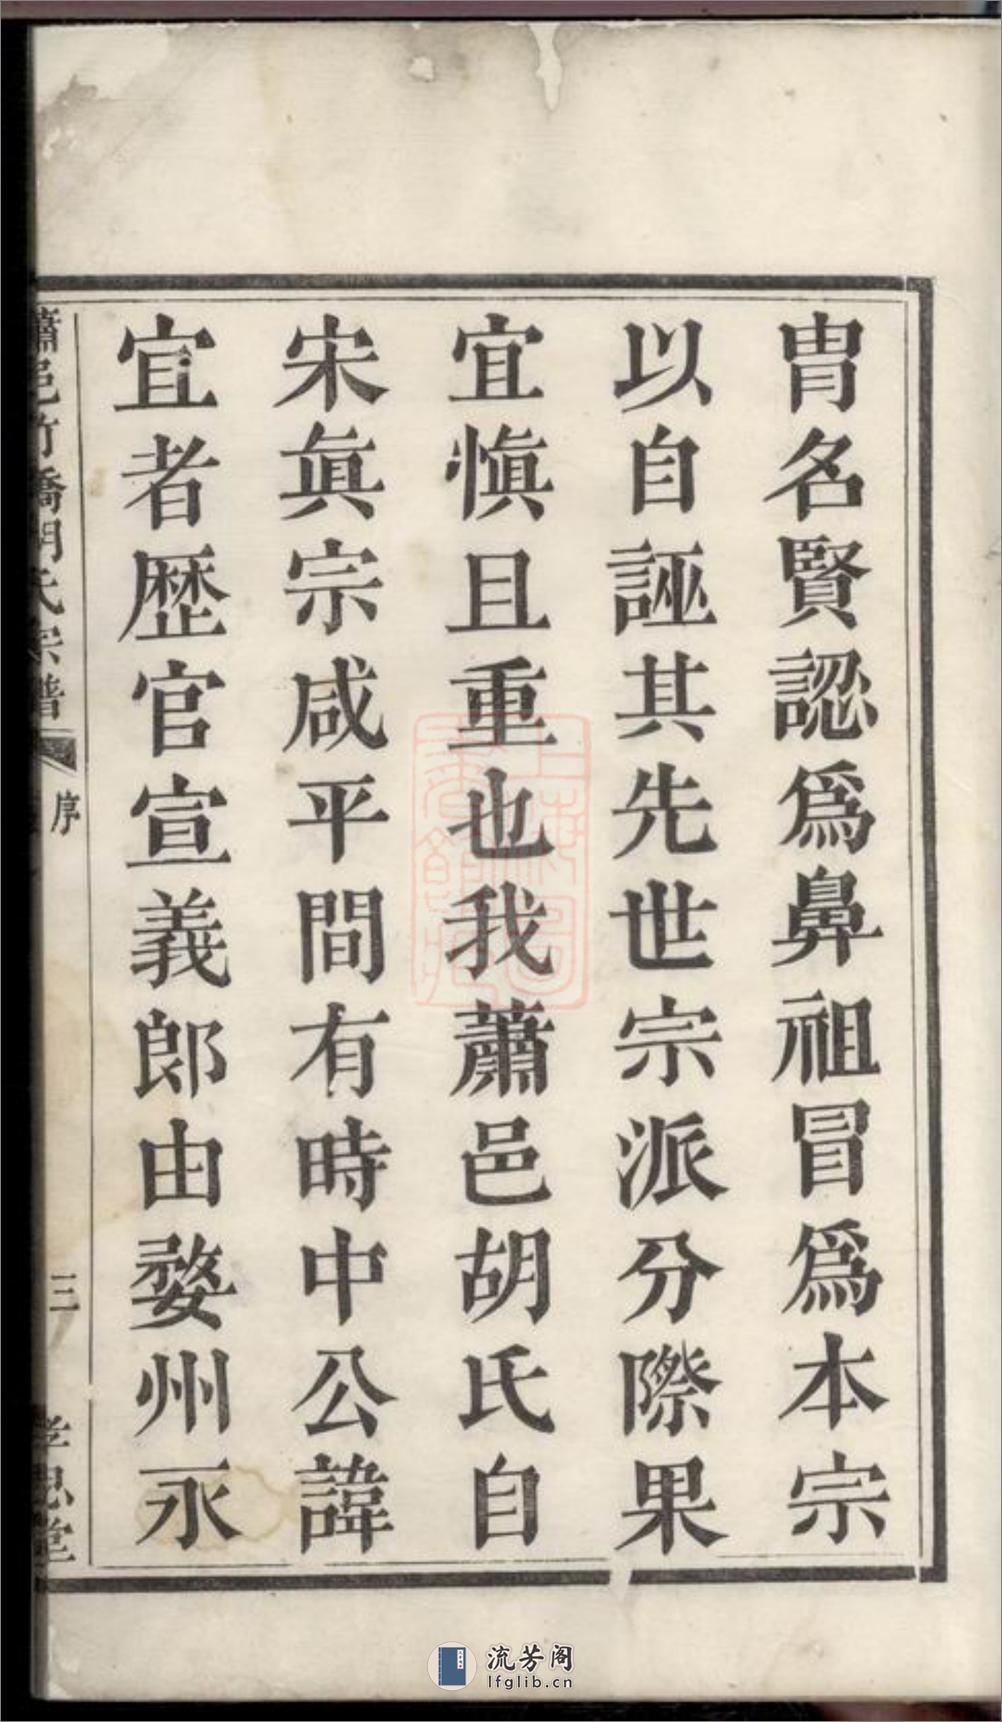 冑名賢認爲鼻祖冒爲本宗
以自誣其先世宗派分際果
宜愼且重也我蕭邑胡氏自
宋眞宗咸平間有時中公諱
宜者歴官宣義郎由婺州永
蕭邑竹橋胡氏宗譜
序
三
孝思堂
上海圖書館藏
流芳阁
lfglib.cn